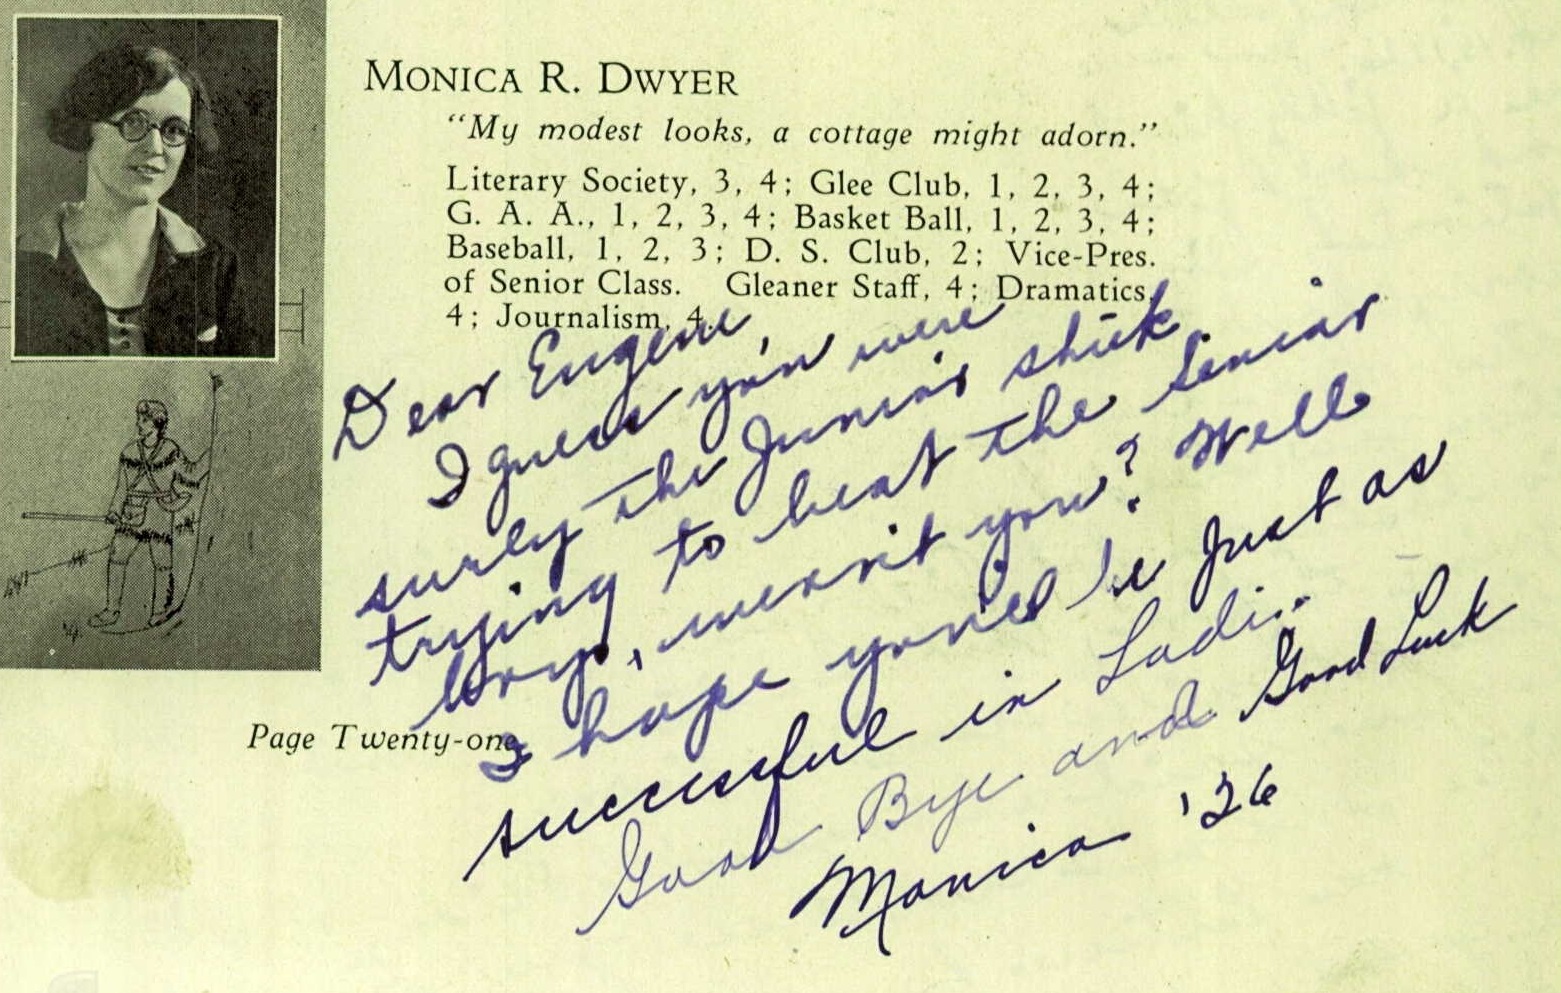 MONICA R. DWYER
"My modest looks, a cottage might adorn."
Literary Society, 3, 4; Glee Club, 1, 2, 3, 4;
G. A. A., 1, 2, 3, 4; Basket Ball, 1, 2, 3, 4;
Baseball, 1, 2, 3; D. S. Club, 2; Vice-Pres.
of Senior Class. Gleaner Staff, 4; Dramatics,
4; Journalism, 4.
Dear Eugene,
I guess you were
surely the Junior
trying to beat the Senior
boys, weren't you? Well
I hope you'll be just as
successful in
Good Bye and Good Luck
Monica '26
Page Twenty-one